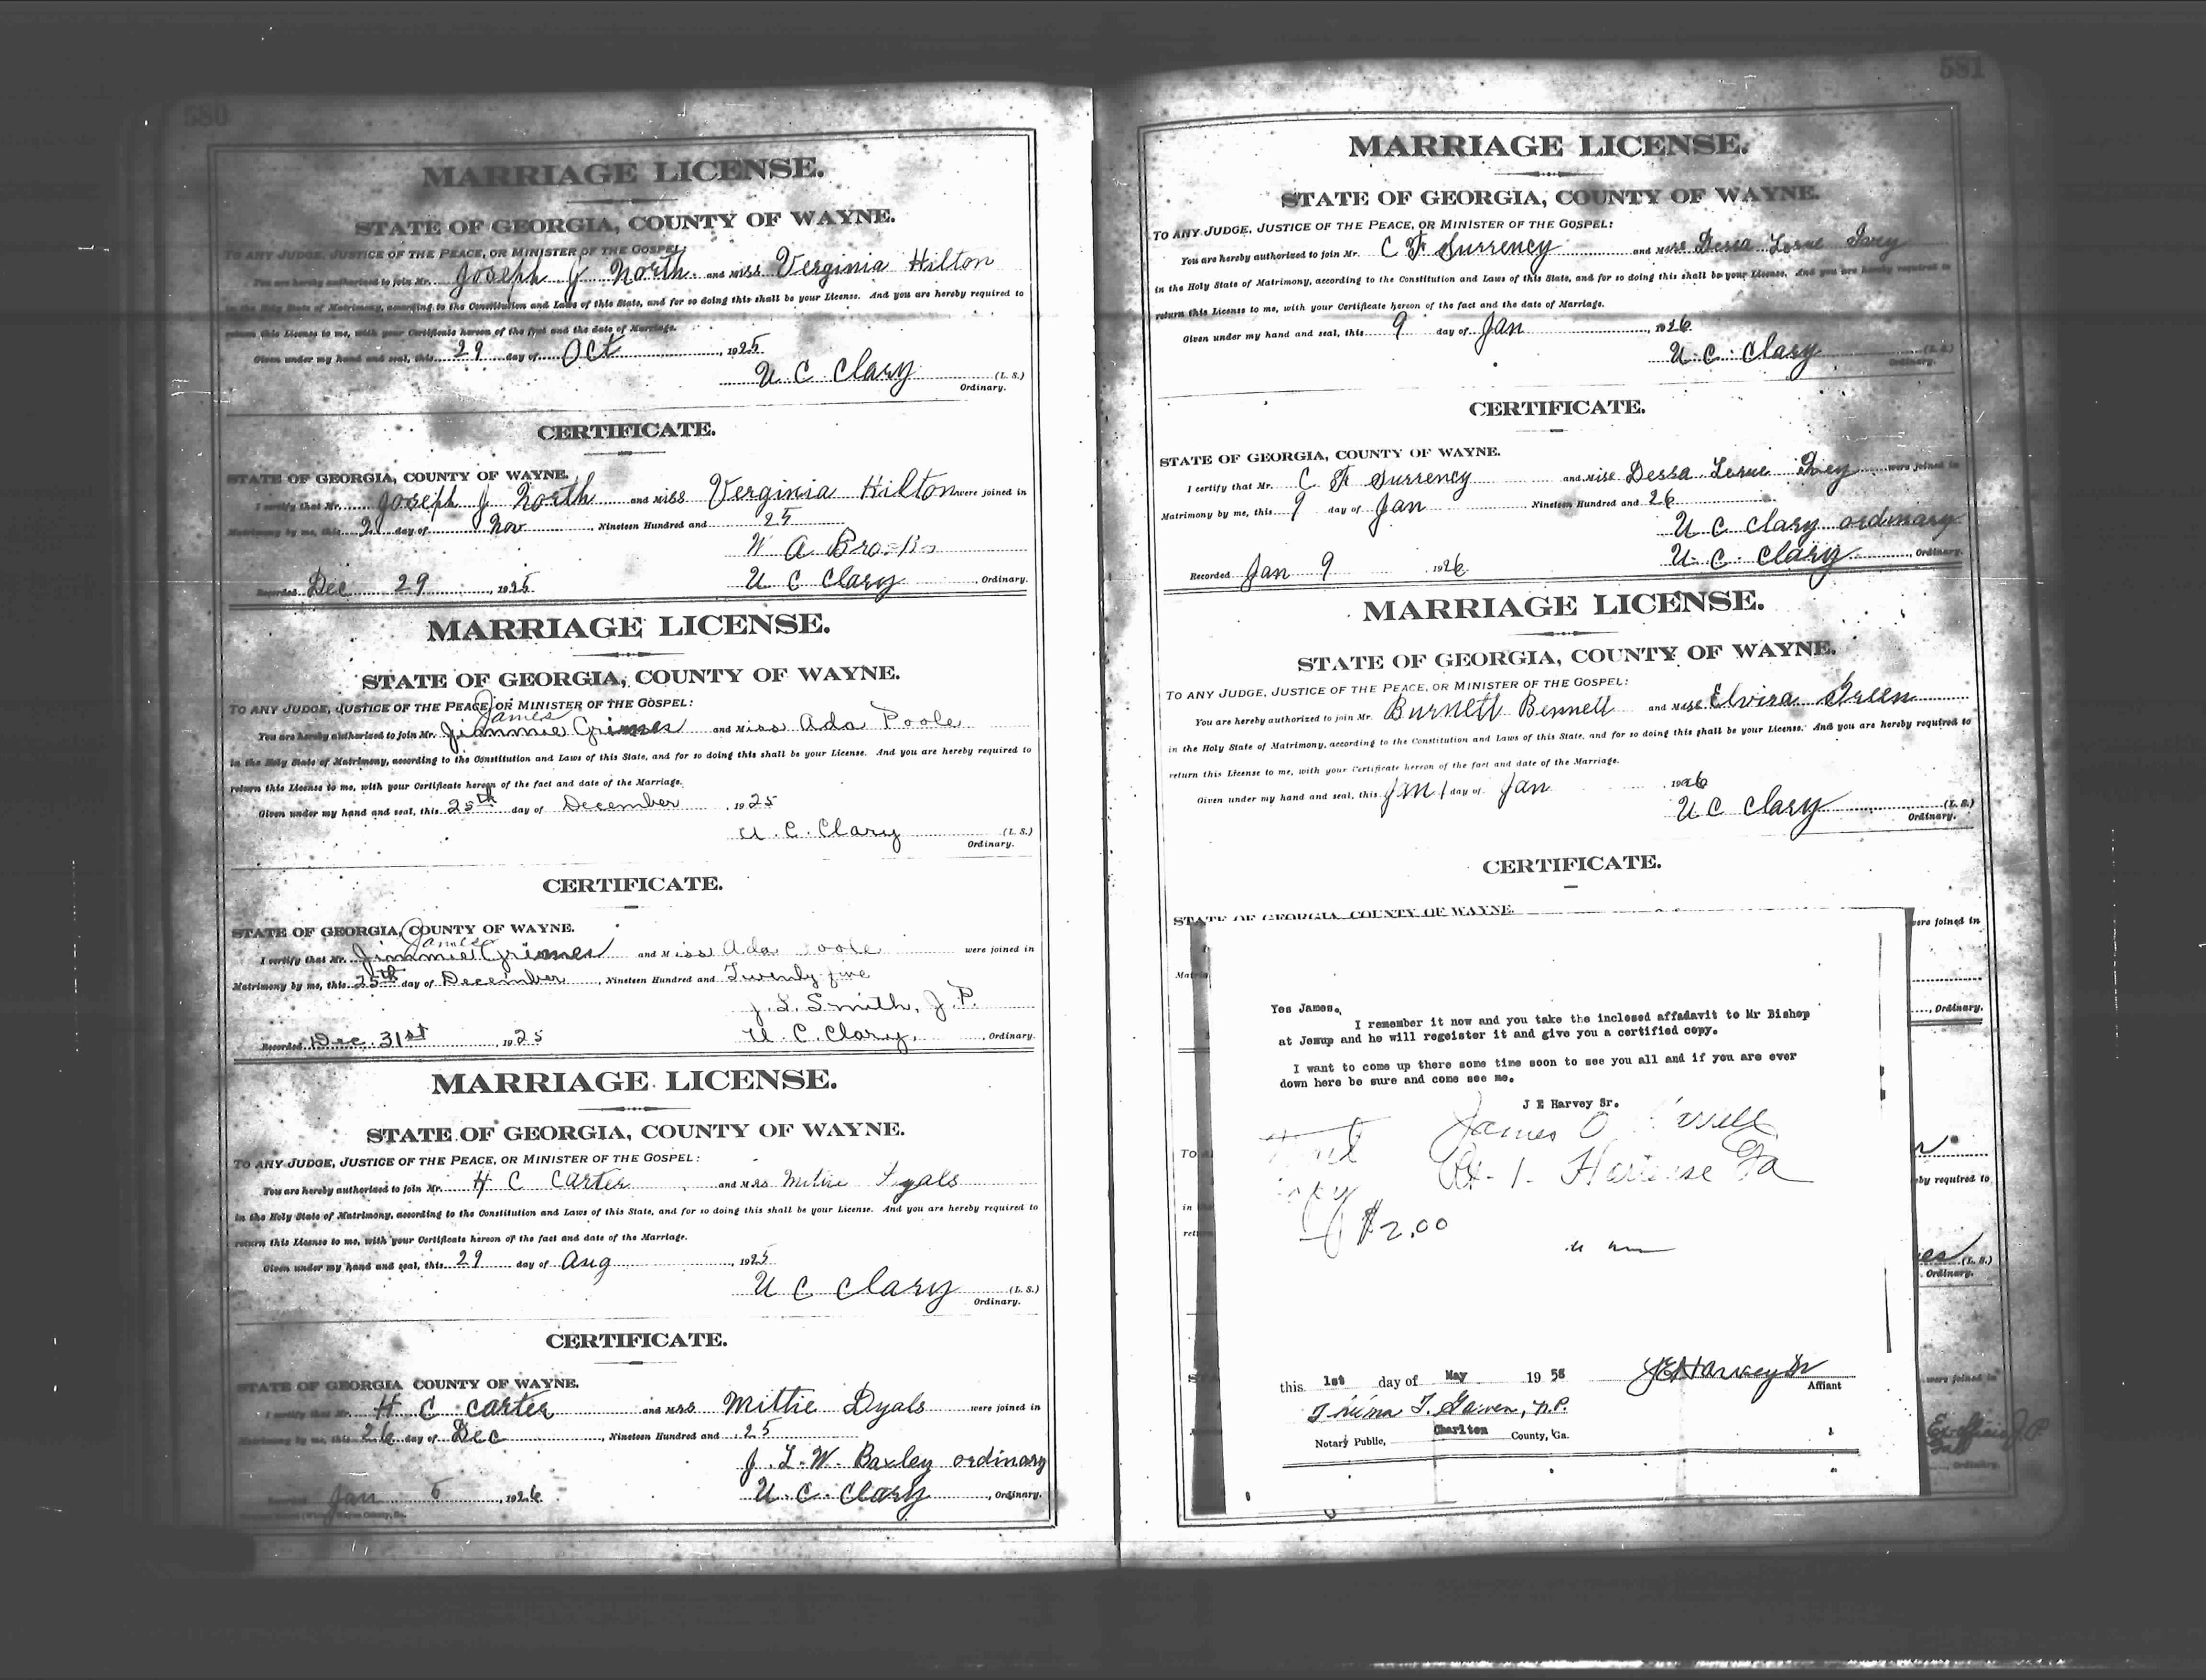 580
MARRIAGE LICENSE.
STATE OF GEORGIA, COUNTY OF WAYNE.
TO ANY JUDGE, JUSTICE OF THE PEACE, OR MINISTER OF THE GOSPEL:
You are hereby authorized to join Mr. Joseph J North and Miss Verginia Hilton
in the Holy State of Matrimony, according to the Constitution and Laws of this State, and for so doing this shall be your License. And you are hereby required to
return this License to me, with your Certificate hereon of the fact and the date of Marriage.
Given under my hand and seal, this 29 day of Oct, 1925
U C Clary (L. S.)
Ordinary.
CERTIFICATE.
STATE OF GEORGIA, COUNTY OF WAYNE.
I certify that Mr. Joseph J North and Miss Verginia Hilton were joined in
Matrimony by me, this day of Nov, Nineteen Hundred and 25
W A
Recorded Dec 29, 1925 U C Clary, Ordinary.
MARRIAGE LICENSE.
STATE OF GEORGIA, COUNTY OF WAYNE.
TO ANY JUDGE, JUSTICE OF THE PEACE, OR MINISTER OF THE GOSPEL:
James
You are hereby authorized to join Mr. Jimmie Grimes and Miss Ada Poole
in the Holy State of Matrimony, according to the Constitution and Laws of this State, and for so doing this shall be your License. And you are hereby required to
return this License to me, with your Certificate hereon of the fact and date of the Marriage.
Given under my hand and seal, this 25th day of December, 1925
U. C. Clary (L. S.)
Ordinary.
CERTIFICATE.
STATE OF GEORGIA, COUNTY OF WAYNE.
James
I certify that Mr. Jimmie Grimes and Miss Ada Poole were joined in
Matrimony by me, this 25th day of December, Nineteen Hundred and Twenty five
J. S. Smith, J. P.
Recorded Dec. 31st, 1925 U. C. Clary, Ordinary.
MARRIAGE LICENSE.
STATE OF GEORGIA, COUNTY OF WAYNE.
TO ANY JUDGE, JUSTICE OF THE PEACE, OR MINISTER OF THE GOSPEL:
You are hereby authorized to join Mr. H C Carter and Mrs Mittie Dyals
in the Holy State of Matrimony, according to the Constitution and Laws of this State, and for so doing this shall be your License. And you are hereby required to
return this License to me, with your Certificate hereon of the fact and date of the Marriage.
Given under my hand and seal, this 29 day of Aug, 1925
U C Clary (L. S.)
Ordinary.
CERTIFICATE.
STATE OF GEORGIA COUNTY OF WAYNE.
I certify that Mr. H C Carter and Mrs Mittie Dyals were joined in
Matrimony by me, this 26 day of Dec, Nineteen Hundred and 25
J. L. W. Baxley ordinary
Recorded Jan 6, 1926 U. C. Clary, Ordinary.
581
MARRIAGE LICENSE.
STATE OF GEORGIA, COUNTY OF WAYNE.
TO ANY JUDGE, JUSTICE OF THE PEACE, OR MINISTER OF THE GOSPEL:
You are hereby authorized to join Mr. C F Surrency and Miss Dessa Lorue Ivey
in the Holy State of Matrimony, according to the Constitution and Laws of this State, and for so doing this shall be your License. And you are hereby required to
return this License to me, with your Certificate hereon of the fact and the date of Marriage.
Given under my hand and seal, this 9 day of Jan, 1926
U. C. Clary (L. S.)
Ordinary.
CERTIFICATE.
STATE OF GEORGIA, COUNTY OF WAYNE.
I certify that Mr. C F Surrency and Miss Dessa Lorue Ivey were joined in
Matrimony by me, this 9 day of Jan, Nineteen Hundred and 26
U C Clary ordinary
Recorded Jan 9 1926 U. C. Clary, Ordinary.
MARRIAGE LICENSE.
STATE OF GEORGIA, COUNTY OF WAYNE.
TO ANY JUDGE, JUSTICE OF THE PEACE, OR MINISTER OF THE GOSPEL:
You are hereby authorized to join Mr. Burnett Bennett and Miss Elvira Green
in the Holy State of Matrimony, according to the Constitution and Laws of this State, and for so doing this shall be your License. And you are hereby required to
return this License to me, with your Certificate hereon of the fact and date of the Marriage.
Given under my hand and seal, this Jan 1 day of Jan, 1926
U C Clary (L. S.)
Ordinary.
CERTIFICATE.
STATE OF GEORGIA, COUNTY OF WAYNE.
were joined in
, Ordinary.
Yes James,
I remember it now and you take the inclosed affadavit to Mr Bishop
at Jesup and he will regeister it and give you a certified copy.
I want to come up there some time soon to see you all and if you are ever
down here be sure and come see me.
J E Harvey Sr.
James O
Rt. 1. Hortense Ga
$2.00
by required to
(L. S.)
Ordinary.
this 1st day of May 1956 J E Harvey Sr
Affiant
T. N.P.
Notary Public, Charlton County, Ga.
were joined in
, Ordinary.